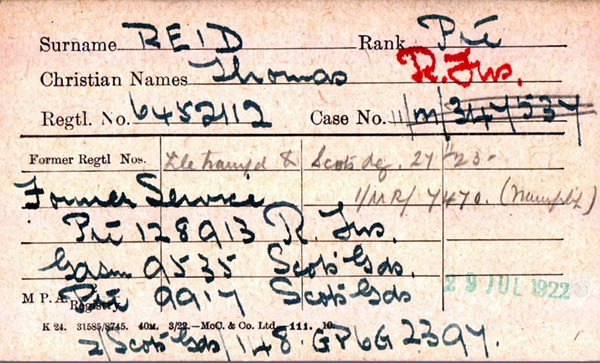 Surname REID Rank Pte
Christian Names Thomas R. Fus.
Regtl. No. 6452112 Case No. 11/M/347537
Former Regtl Nos. File transf'd to Scots Gds. 27 23
Former Service 1/MR/7470.
Pte 128913 R. Fus.
Gdsm 9535 Scots Gds.
29 JUL 1922
M P A Registry Pte 9917 Scots Gds
K 24. 31585/8745. 40M. 3/22.—McC. & Co. Ltd.—111. 10.
2/Scots Gds/148. GP6G 2397.